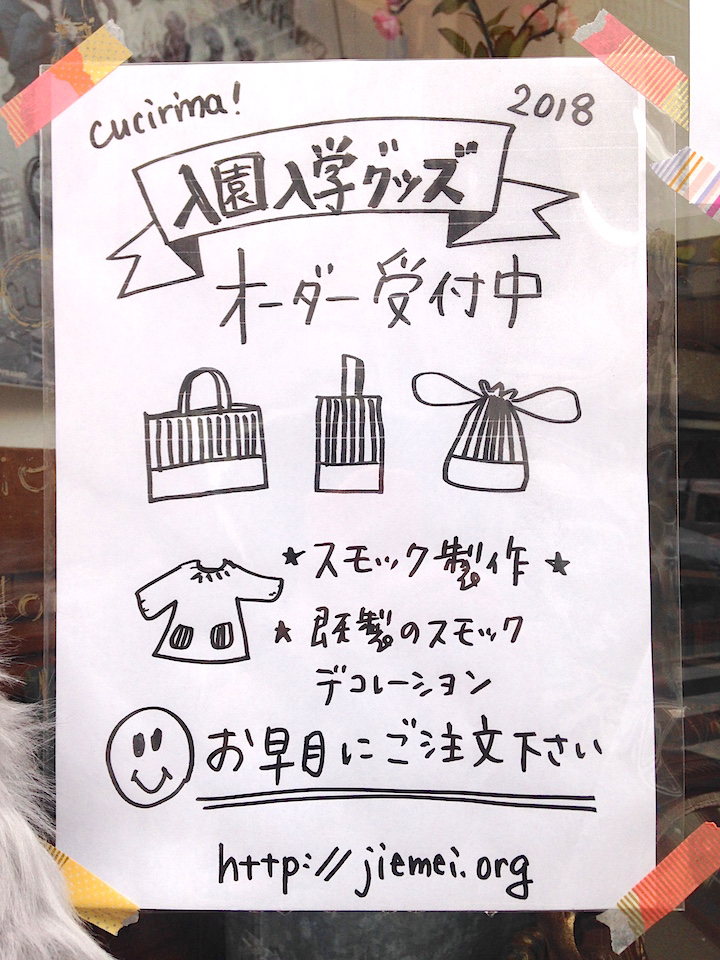 cucirina! 2018
入園入学グッズ
オーダー受付中
★スモック製作★
★既製のスモック
デコレーション
お早目にご注文下さい
http://jiemei.org